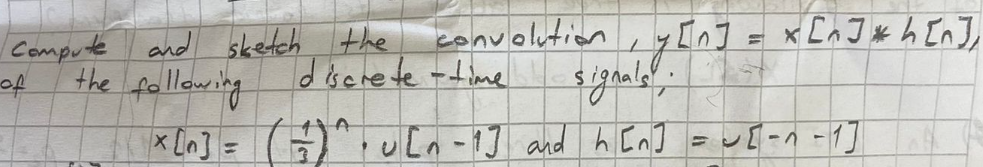 compute and sketch the convolution, y[n] = x[n] * h[n],
of the following discrete-time signals;
x[n] = (1/3)^n . u[n-1] and h[n] = u[-n-1]